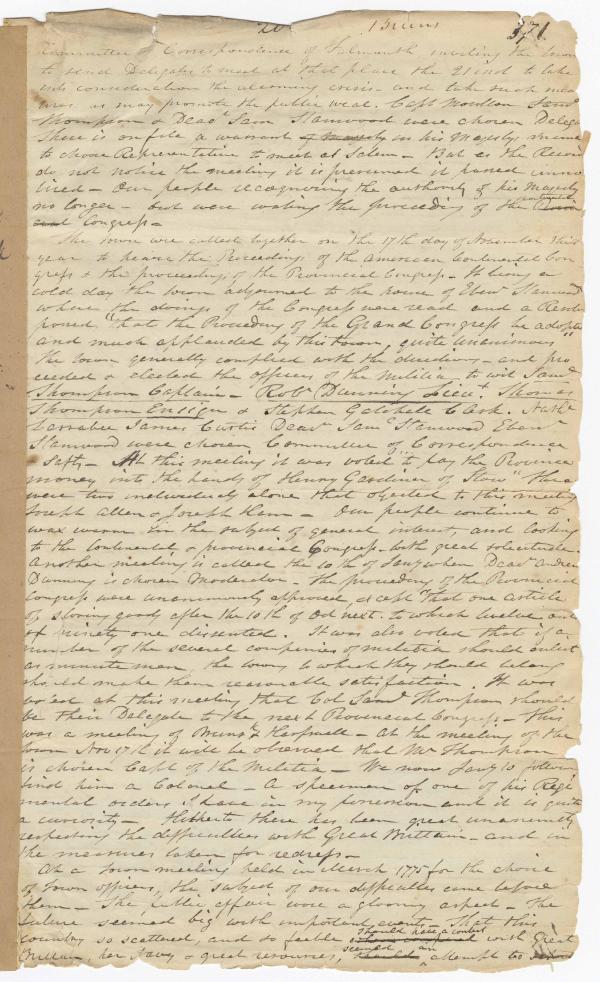 20 Bruns 371
Committee of Correspondence of Falmouth inviting the town
to send Delegates to meet at that place the 21 inst to take
into consideration the alarming crisis and take such mea
ures as may promote the public weal. Capt Moulton Saml
Thompson & Deac Sam Stanwood were chosen Delega
There is on file a warrant of majesty in his Majestys name
to choose Representative to meet at Salem - But as the Record
do not notice the meeting it is presumed it passed unno
ticed - Our people recognizing the authority of his Majesty
no longer - but were waiting the proceeding of the continental
and Congress -
The town were called together on the 17th day of November this
year to peruse the Proceedings of the American Continental Con
gress & the proceedings of the Provincial Congress - It being a
cold day the town adjourned to the house of Ebenr Stanwood
where the doings of the Congress were read and a Resolve
passed "that the Proceeding of the Grand Congress be adopted
and much applauded by this town, quite unanimous"
The town generally complied with the directions - and pro
ceeded & elected the officers of the Militia - to wit Saml
Thompson Captain - Robt Dunning Lieut. Thomas
Thompson Ensign & Stephen Getchell Clerk. Nathl
Larrabee James Curtis Deac Saml Stanwood Ebenr
Stanwood were chosen Committee of Correspondence
Safty - At this meeting it was voted "to pay the Province
money into the hands of Henry Gardiner of Stow" There
were two individuals alone that objected to this meeting
Joseph Allen & Joseph Hern - Our people continue to
wax warm in the subject of general interest, and looking
to the Continental & provincial Congress with great solicitude.
Another meeting is called the 10th of Jany when Deac Andrew
Dunning is chosen Moderator - The proceeding of the Provincial
Congress were unanimously approved, except "that one article
of storing goods after the 10th of Oct next. to which twelve out
of ninety one dissented. It was also voted that if a
number of the several companies of militia should enlist
as minute men, the towns to which they should belong
should make them reasonable satisfaction It was
voted at this meeting that Col Saml Thompson should
be their Delegate to the next Provincial Congress - This
was a meeting of Brunsk & Harpswell - At the meeting of the
town Nov 17th it will be observed that Mr Thompson
is chosen Capt of the Militia - We now Jany 10 following
find him a Colonel - A specimen of one of his Regi
mental orders I have in my possession and it is quite
a curiosity - Hitherto there has been great unanimity
respecting the difficulties with Great Brittain - and in
the measures taken for redress -
At a town meeting held in March 1775 for the choice
of town officers, the subject of our difficulties came before
them - The public affair wore a gloomy aspect - The
future seemed big with important events - That this
Country so scattered, and so feeble should have a contest with Great
Brittain, her Navy & great resources, seemed an attempt to